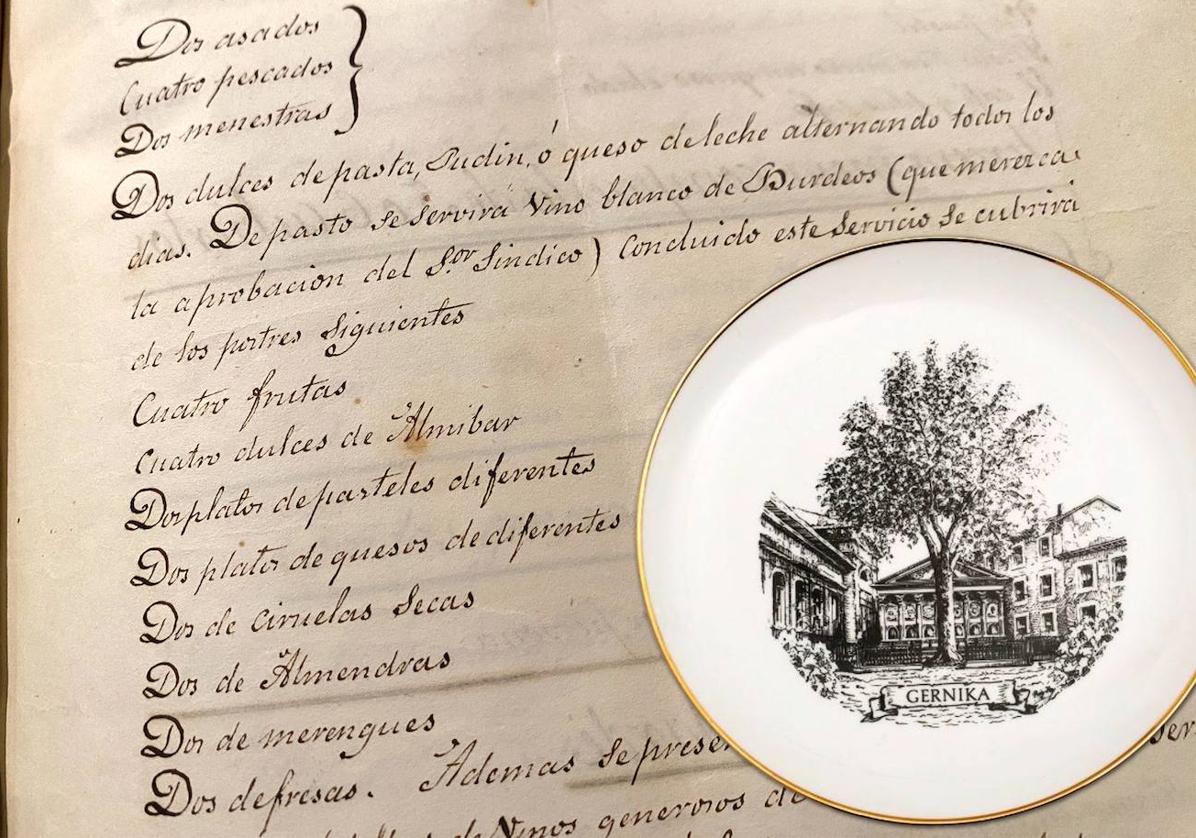 Dos asados
Cuatro pescados
Dos menestras
Dos dulces de pasta, Pudin, ó queso de leche alternando todos los
dias. De pasto se servirá Vino blanco de Burdeos (que merezca
la aprobacion del S.or Sindico) Concluido este servicio se cubrirá
de los postres siguientes
Cuatro frutas
Cuatro dulces de Almibar
Dos platos de pasteles diferentes
Dos platos de quesos de diferentes
Dos de ciruelas secas
Dos de Almendras
Dos de merengues
Dos de fresas. Ademas se prese
de Vinos generosos de
GERNIKA